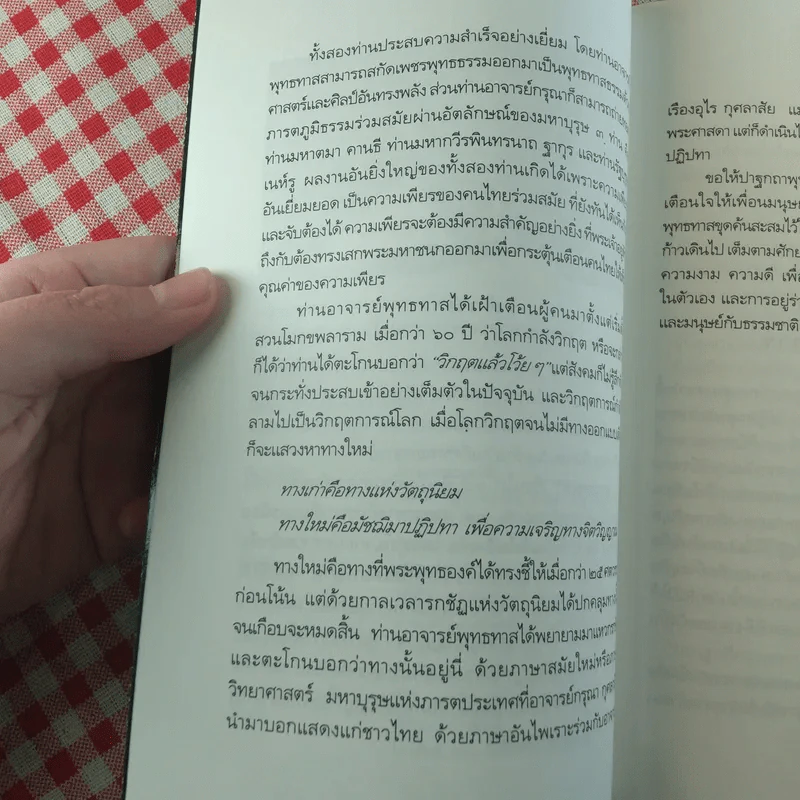 ทั้งสองท่านประสบความสำเร็จอย่างเยี่ยม โดยท่าน
พุทธทาสสามารถสกัดเพชรพุทธธรรมออกมาเป็นพุทธทาสธรรม
ศาสตร์และศิลป์อันทรงพลัง ส่วนท่านอาจารย์กรุณาก็สามารถ
ภารตภูมิธรรมร่วมสมัยผ่านอัตลักษณ์ของมหาบุรุษ ๓ ท่าน
ท่านมหาตมา คานธี ท่านมหากวีรพินทรนาถ ฐากุร และท่าน
เนห์รู ผลงานอันยิ่งใหญ่ของทั้งสองท่านเกิดได้เพราะความ
อันเยี่ยมยอด เป็นความเพียรของคนไทยร่วมสมัย ที่ยังทันได้
และจับต้องได้ ความเพียรจะต้องมีความสำคัญอย่างยิ่ง ที่พระเจ้า
ถึงกับต้องทรงเสกพระมหาชนกออกมาเพื่อกระตุ้นเตือนคนไทย
คุณค่าของความเพียร
ท่านอาจารย์พุทธทาสได้เฝ้าเตือนผู้คนมาตั้งแต่
สวนโมกขพลาราม เมื่อกว่า ๖๐ ปี ว่าโลกกำลังวิกฤต หรือ
ก็ได้ว่าท่านได้ตะโกนบอกว่า “วิกฤตแล้วโว้ย ๆ” แต่สังคมก็ไม่
จนกระทั่งประสบเข้าอย่างเต็มตัวในปัจจุบัน และวิกฤตการณ์
ลามไปเป็นวิกฤตการณ์โลก เมื่อโลกวิกฤตจนไม่มีทางออก
ก็จะแสวงหาทางใหม่
ทางเก่าคือทางแห่งวัตถุนิยม
ทางใหม่คือมัชฌิมาปฏิปทา เพื่อความเจริญทางจิตวิญญาณ
ทางใหม่คือทางที่พระพุทธองค์ได้ทรงชี้ให้เมื่อกว่า ๒๕
ก่อนโน้น แต่ด้วยกาลเวลารกชัฏแห่งวัตถุนิยมได้ปกคลุม
จนเกือบจะหมดสิ้น ท่านอาจารย์พุทธทาสได้พยายามมา
และตะโกนบอกว่าทางนั้นอยู่นี่ ด้วยภาษาสมัยใหม่หรือ
วิทยาศาสตร์ มหาบุรุษแห่งภารตประเทศที่อาจารย์กรุณา
นำมาบอกแสดงแก่ชาวไทย ด้วยภาษาอันไพเราะร่วมกับ
เรืองอุไร กุศลาสัย
พระศาสดา แต่ก็ดำเนิน
ปฏิปทา
ขอให้ปาฐกถา
เตือนใจให้เพื่อนมนุษย์
พุทธทาสขุดค้นสะสมไว้
ก้าวเดินไป เต็มตามศักย
ความงาม ความดี
ในตัวเอง และการอยู่
และมนุษย์กับธรรมชาติ